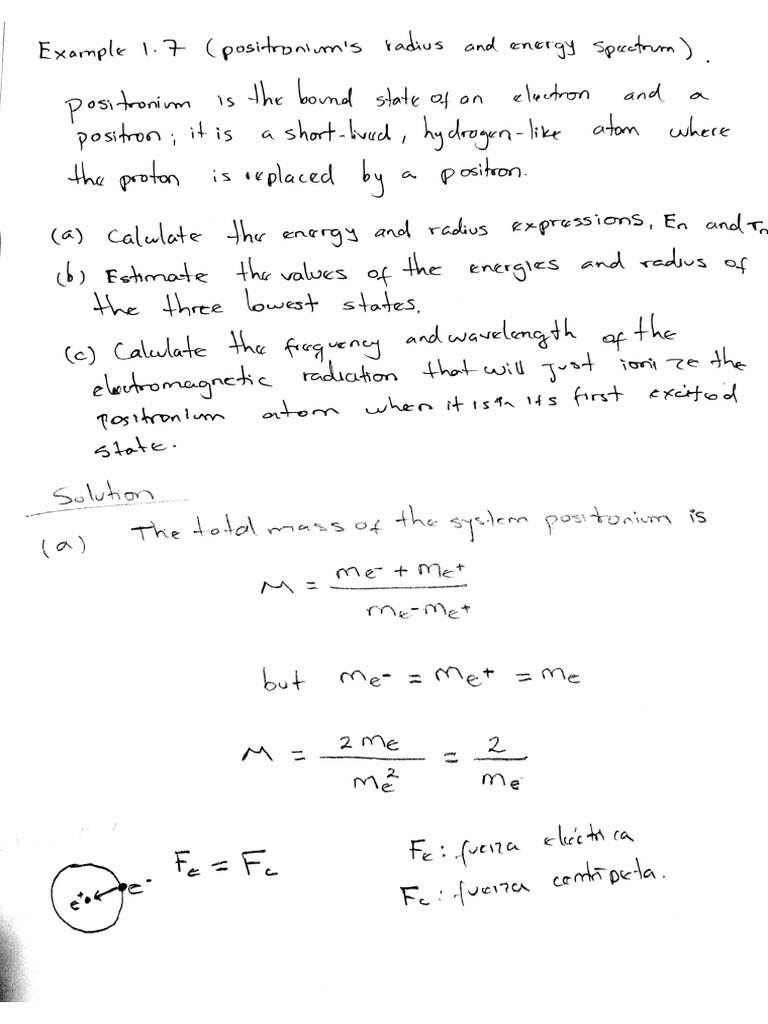 Example 1.7 (positronium's radius and energy spectrum).
Positronium is the bound state of an electron and a
positron; it is a short-lived, hydrogen-like atom where
the proton is replaced by a positron.
(a) Calculate the energy and radius expressions, En and rn
(b) Estimate the values of the energies and radius of
the three lowest states.
(c) Calculate the frequency and wavelength of the
electromagnetic radiation that will just ionize the
positronium atom when it is in its first excited
state.
Solution
(a) The total mass of the system positronium is
M = (me- + me+) / (me- me+)
but me- = me+ = me
M = 2me / me² = 2 / me
e+ e- Fe = Fc
Fe: fuerza eléctrica
Fc: fuerza centrípeta.